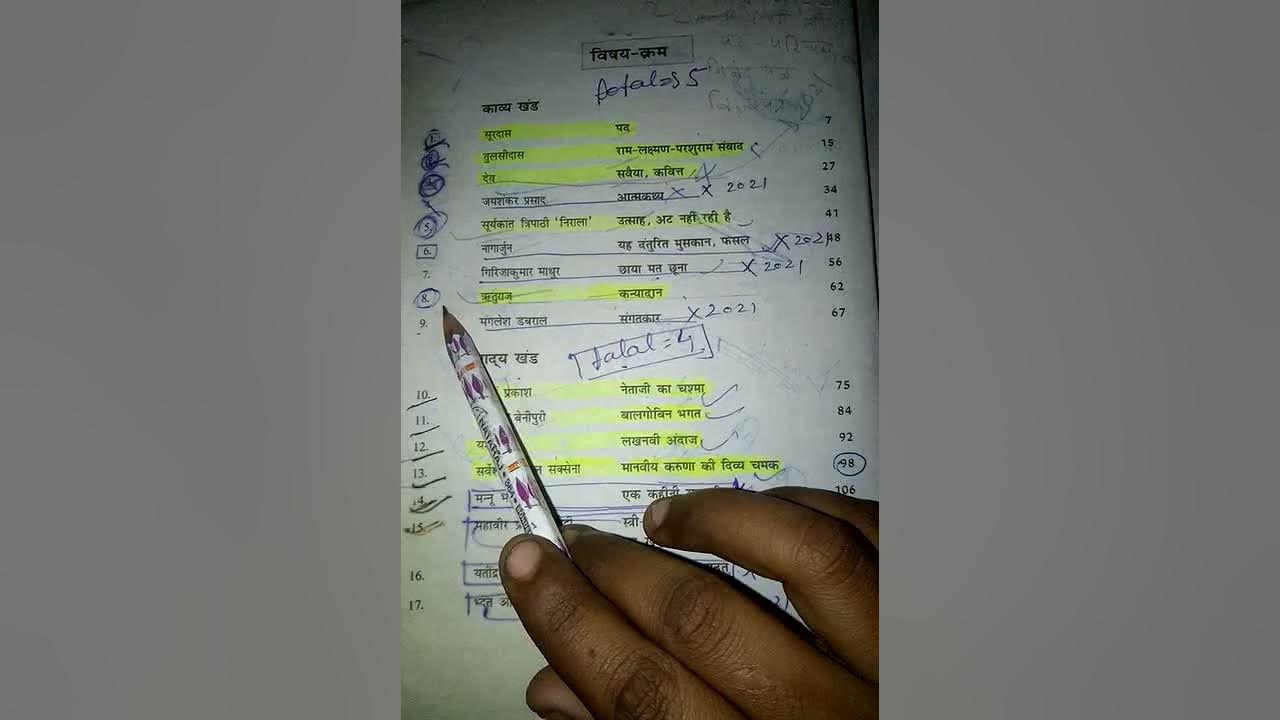 विषय-क्रम
total=5
काव्य खंड
7
सूरदास पद
तुलसीदास राम-लक्ष्मण-परशुराम संवाद 15
देव सवैया, कवित्त 27
जयशंकर प्रसाद आत्मकथ्य X X 2021 34
5. सूर्यकांत त्रिपाठी 'निराला' उत्साह, अट नहीं रही है 41
6. नागार्जुन यह दंतुरित मुसकान, फसल X 2021 48
7. गिरिजाकुमार माथुर छाया मत छूना X 2021 56
8. ऋतुराज कन्यादान 62
9. मंगलेश डबराल संगतकार X 2021 67
गद्य खंड total=4
10. प्रकाश नेताजी का चश्मा 75
11. बेनीपुरी बालगोबिन भगत 84
12. लखनवी अंदाज़ 92
13. सक्सेना मानवीय करुणा की दिव्य चमक 98
14. मन्नू एक कहानी 106
15. महावीर स्त्री
16. यतींद्र
17.